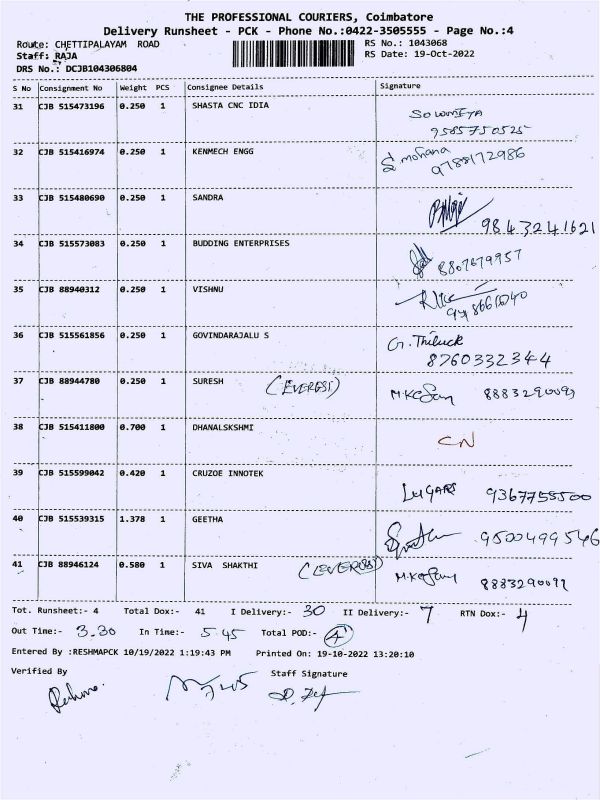 THE PROFESSIONAL COURIERS, Coimbatore
Delivery Runsheet - PCK - Phone No.:0422-3505555 - Page No.:4
Route: CHETTIPALAYAM ROAD RS No.: 1043068
Staff: RAJA RS Date: 19-Oct-2022
DRS No.: DCJB104306804
S No Consignment No Weight PCS Consignee Details Signature
31 CJB 515473196 0.250 1 SHASTA CNC IDIA
9585750525
32 CJB 515416974 0.250 1 KENMECH ENGG mohana
9788172986
33 CJB 515480690 0.250 1 SANDRA
9843241621
34 CJB 515573083 0.250 1 BUDDING ENTERPRISES
8807679957
35 CJB 88940312 0.250 1 VISHNU
36 CJB 515561856 0.250 1 GOVINDARAJALU S G. Thiluck
8760332344
37 CJB 88944780 0.250 1 SURESH (EVEREST)
38 CJB 515411800 0.700 1 DHANALSKSHMI
CN
39 CJB 515599042 0.420 1 CRUZOE INNOTEK
9367755500
40 CJB 515539315 1.378 1 GEETHA
9500499546
41 CJB 88946124 0.580 1 SIVA SHAKTHI (EVEREST)
Tot. Runsheet:- 4 Total Dox:- 41 I Delivery:- 30 II Delivery:- 7 RTN Dox:- 4
Out Time:- 3.30 In Time:- 5.45 Total POD:- 4
Entered By :RESHMAPCK 10/19/2022 1:19:43 PM Printed On: 19-10-2022 13:20:10
Verified By Staff Signature
Reshma.